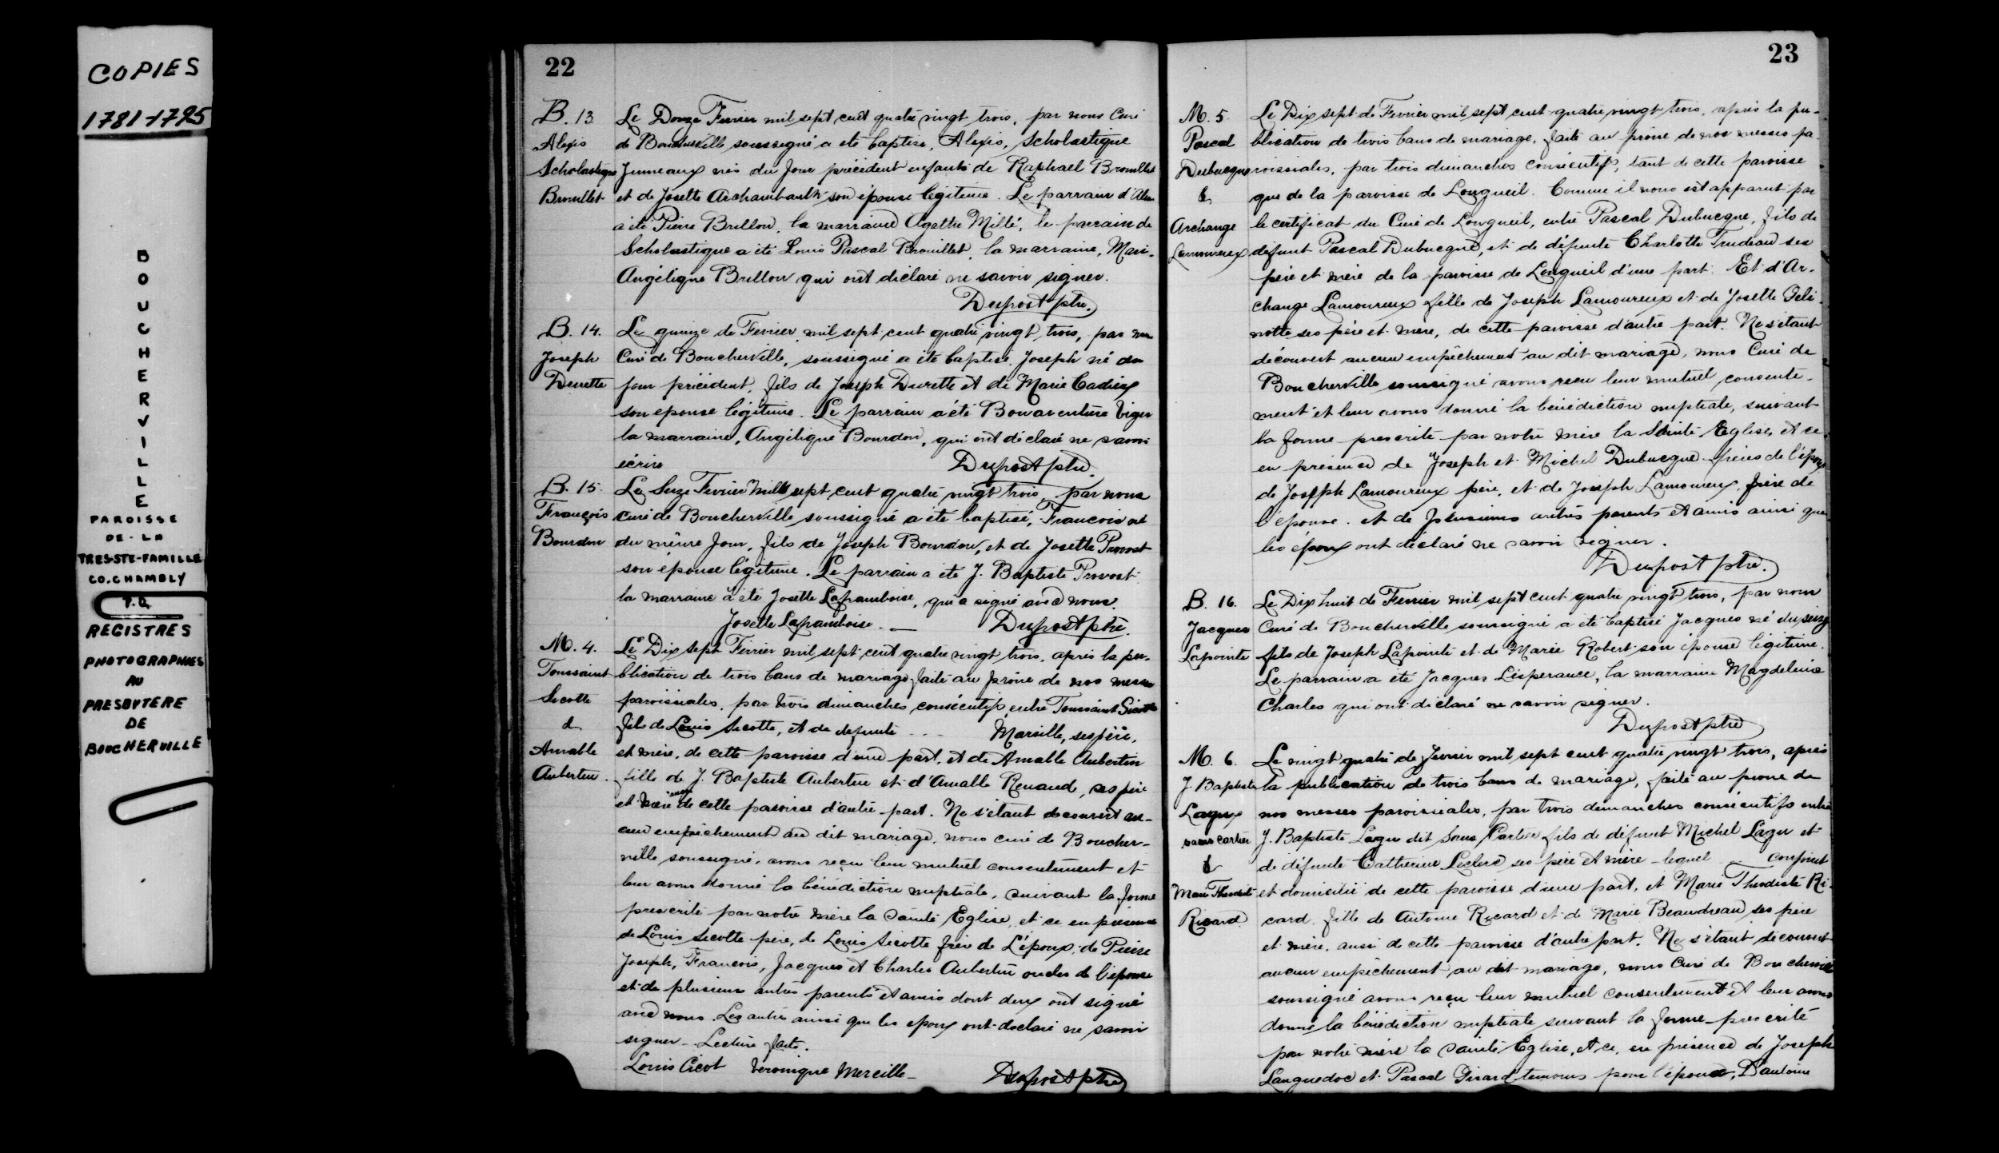 COPIES
1781-1795
BOUCHERVILLE
PAROISSE
DE-LA
TRES-STE-FAMILLE
CO. CHAMBLY
P.Q.
REGISTRES
PHOTOGRAPHIÉS
AU
PRESBYTERE
DE
BOUCHERVILLE
22
B. 13
Alexis
Scholastique
Brouillet
Le Douze Fevrier mil sept cent quatre vingt trois, par nous Curé
de Boucherville soussigné a été baptisé, Alexis, Scholastique
Jumeaux nés du Jour précédent enfants de Raphael Brouillet
et de Josette Archambault son épouse légitime. Le parrain d'Alexis
a été Pierre Brillon, la marraine Agathe Millé, le parrain de
Scholastique a été Louis Pascal Brouillet, la marraine, Marie
Angélique Brillon qui ont déclaré ne savoir signer.
Dupost ptre.
B. 14.
Joseph
Deurette
Le quinze de Fevrier mil sept cent quatre vingt trois, par nous
Curé de Boucherville, soussigné a été baptisé Joseph né du
jour précédent, fils de Joseph Durette et de Marie Cadieux
son épouse légitime. Le parrain a été Bonaventure Viger
la marraine, Angélique Bourdon, qui ont déclaré ne savoir
écrire
Dupost ptre.
B. 15.
François
Bourdon
Le Seize Fevrier Mille sept cent quatre vingt trois, par nous
curé de Boucherville soussigné a été baptisé, Francois né
du même Jour, fils de Joseph Bourdon, et de Josette Provost
son épouse légitime. Le parrain a été J. Baptiste Provost
la marraine a été Josette Laframboise, qui a signé avec nous.
Josette Laframboise. — Dupost ptre.
M. 4.
Toussaint
Sicotte
&
Amable
Aubertin.
Le Dix sept Fevrier mil sept cent quatre vingt trois, après la pu-
blication de trois bans de mariage faite au prône de nos messes
paroissiales, par trois dimanches consécutifs entre Toussaint Sicotte
fils de Louis Sicotte, et de défunte ... Marsille, ses père,
et mère, de cette paroisse d'une part, et de Amable Aubertin
fille de J. Baptiste Aubertin et d'Amable Renaud, ses père
et mère aussi de cette paroisse d'autre part. Ne s'étant découvert au-
cun empêchement au dit mariage, nous curé de Boucher-
ville soussigné, avons reçu leur mutuel consentement et
leur avons donné la bénédiction nuptiale, suivant la forme
prescrite par notre mère la Sainte Eglise, et ce en présence
de Louis Sicotte père, de Louis Sicotte frère de L'époux, de Pierre
Joseph, Francois, Jacques et Charles Aubertin oncles de l'épouse
et de plusieurs autres parents et amis dont deux ont signé
avec nous. Les autres ainsi que les epoux ont déclaré ne savoir
signer - Lecture faite.
Louis Cicot Veronique Merceille - Dupost ptre
23
M. 5.
Pascal
Dubucque
&
Archange
Lamoureux
Le Dix sept de Fevrier mil sept cent quatre vingt trois, après la pu-
blication de trois bans de mariage, faite au prône de nos messes pa-
roissiales, par trois dimanches consécutifs, tant de cette paroisse
que de la paroisse de Longueil. Comme il nous est apparut par
le certificat du Curé de Longueil, entre Pascal Dubucque, fils de
défunt Pascal Dubucque, et de défunte Charlotte Trudeau ses
père et mère de la paroisse de Longueil d'une part. Et d'Ar-
change Lamoureux fille de Joseph Lamoureux et de Josette Feli-
notte ses père et mère, de cette paroisse d'autre part. Ne s'étant
découvert aucun empêchement au dit mariage, nous Curé de
Boucherville soussigné avons reçu leur mutuel consente-
ment et leur avons donné la bénédiction nuptiale, suivant
la forme prescrite par notre mère la Sainte Eglise, et ce
en présence de Joseph et Michel Dubucque frères de l'époux
de Joseph Lamoureux père, et de Joseph Lamoureux, frère de
l'épouse, et de plusieurs autres parents et amis ainsi que
les époux ont déclaré ne savoir signer.
Dupost ptre.
B. 16.
Jacques
Lapointe
Le Dix huit de Fevrier mil sept cent quatre vingt trois, par nous
Curé de Boucherville soussigné a été baptisé Jacques né du seize
fils de Joseph Lapointe et de Marie Robert son épouse légitime.
Le parrain a été Jacques L'esperance, la marraine Magdeleine
Charles qui ont déclaré ne savoir signer.
Dupost ptre
M. 6.
J. Baptiste
Lague
sanscartier
&
Marie Theodiste
Ricard
Le vingt quatre de Fevrier mil sept cent quatre vingt trois, après
la publication de trois bans de mariage, faite au prone de
nos messes paroissiales, par trois dimanches consécutifs entre
J. Baptiste Lague dit Sans Cartier fils de défunt Michel Lague et
de défunte Catherine Leclerc ses père et mère - lequel conjoint
et domicilié de cette paroisse d'une part, et Marie Theodiste Ri-
card, fille de Antoine Ricard et de Marie Beaudreau, ses père
et mère, aussi de cette paroisse d'autre part. Ne s'étant découvert
aucun empêchement au dit mariage, nous Curé de Boucherville
soussigné avons reçu leur mutuel consentement et leur avons
donné la bénédiction nuptiale suivant la forme prescrite
par notre mère la Sainte Eglise, et ce, en présence de Joseph
Languedoc et Pascal Girard temoins pour l'époux, D'antoine